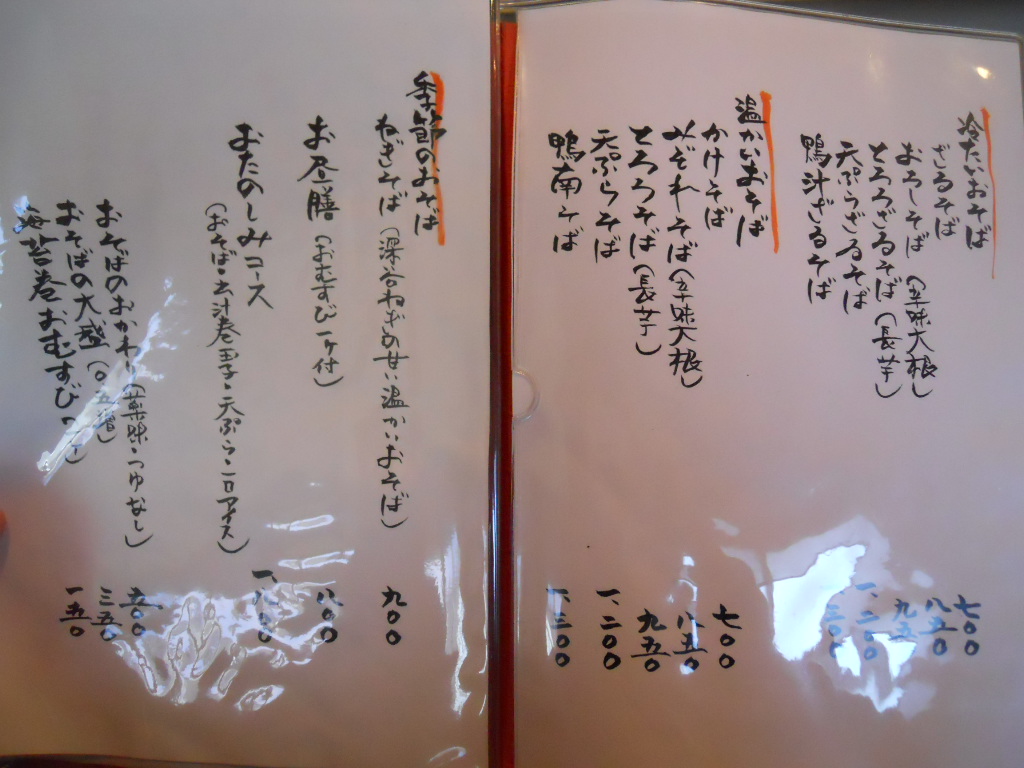 冷たいおそば
ざるそば 七〇〇
おろしそば(辛味大根) 八五〇
とろろざるそば(長芋) 九五〇
天ぷらざるそば 一、二〇〇
鴨汁ざるそば 三〇〇
温かいおそば
かけそば 七〇〇
みぞれそば(辛味大根) 八五〇
とろろそば(長芋) 九五〇
天ぷらそば 一、二〇〇
鴨南そば 一、三〇〇
季節のおそば
ねぎそば(深谷ねぎの甘い温かいおそば) 九〇〇
お昼膳(おむすび一ヶ付) 八〇〇
おたのしみコース
(おそば・出汁巻玉子・天ぷら・アイス) 一、〇〇
おそばのおかわり(薬味・つゆなし) 五〇〇
おそばの大盛(〇.五増) 三五〇
海苔巻おむすび 一五〇